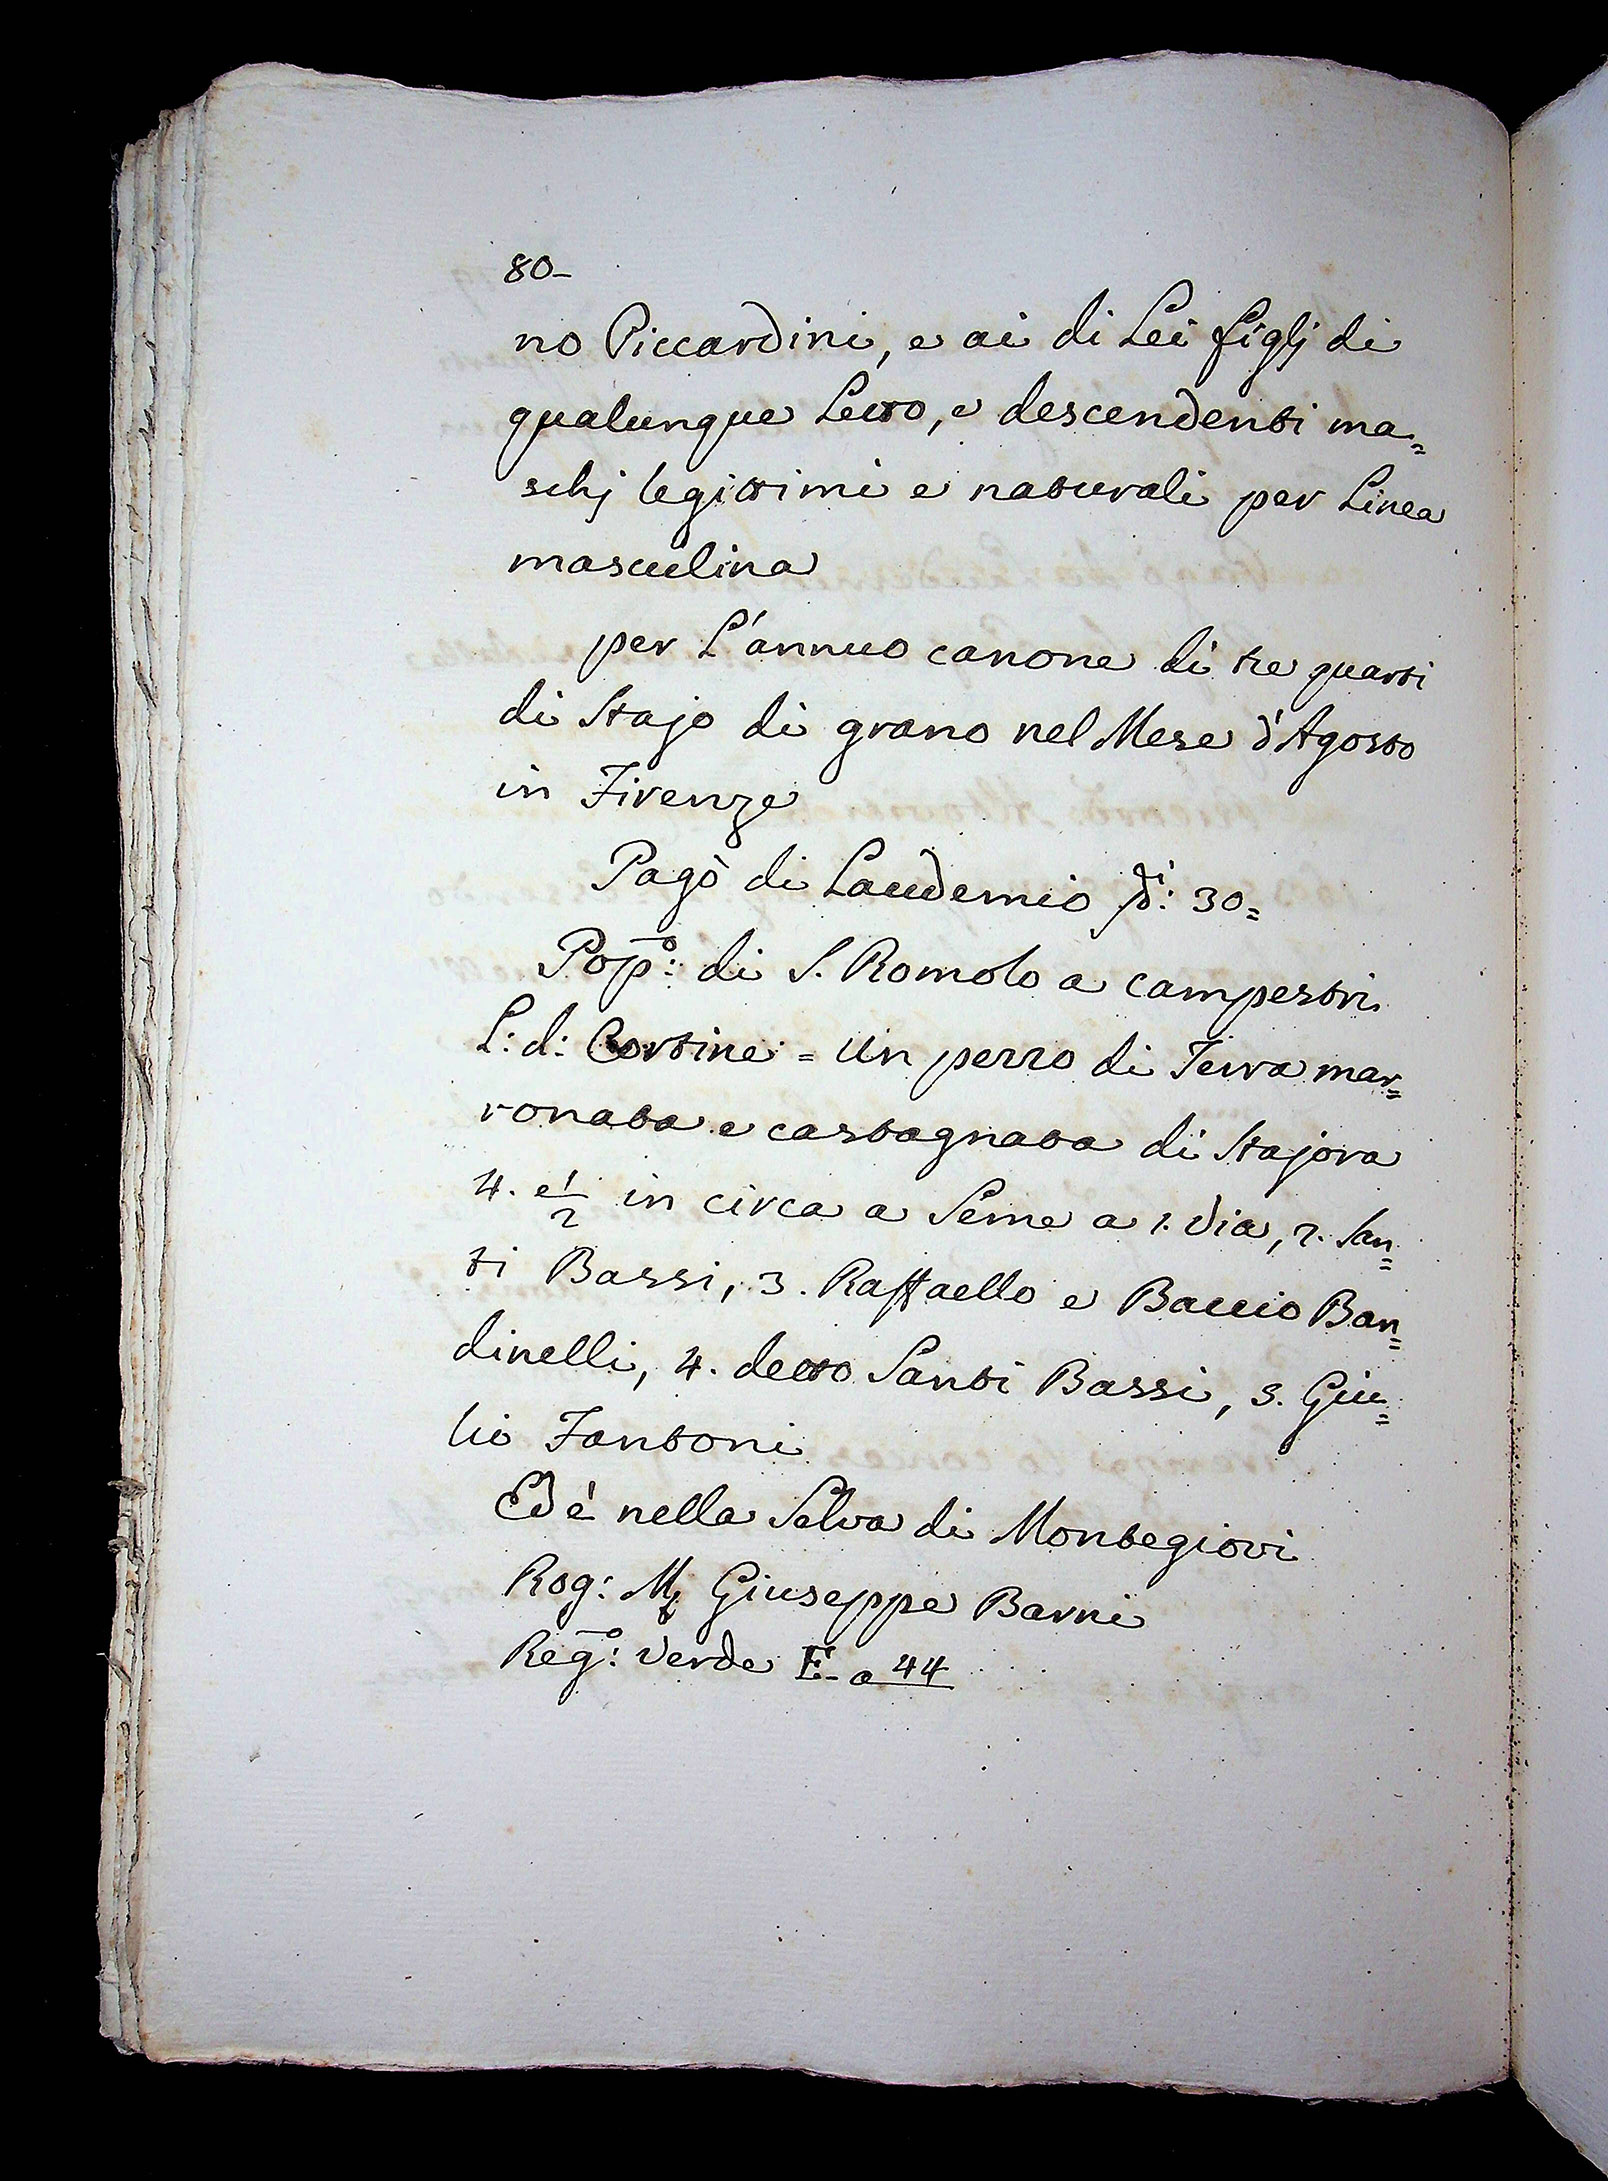 80-
no Piccardini, e ai di Lei figlj di
qualunque Letto, e descendenti ma=
schj legittimi e naturali per Linea
masculina
per L'annuo canone di tre quarti
di Stajo di grano nel Mese d'Agosto
in Firenze
Pagò di Laudemio 30=
Pop.o: di S. Romolo a campestri
L: d: Cortine = Un pezzo di Terra mar=
ronata e castagnata di Stajora
4. e 1/2 in circa a Seme a 1. Via, 2. San=
ti Bassi, 3. Raffaello e Baccio Ban=
dinelli, 4. detto Santi Bassi, 5. Giu=
lio Fantoni
Ed è nella Selva di Montegiovi
Rog: Giuseppe Barni
Reg.o: Verde E- a 44